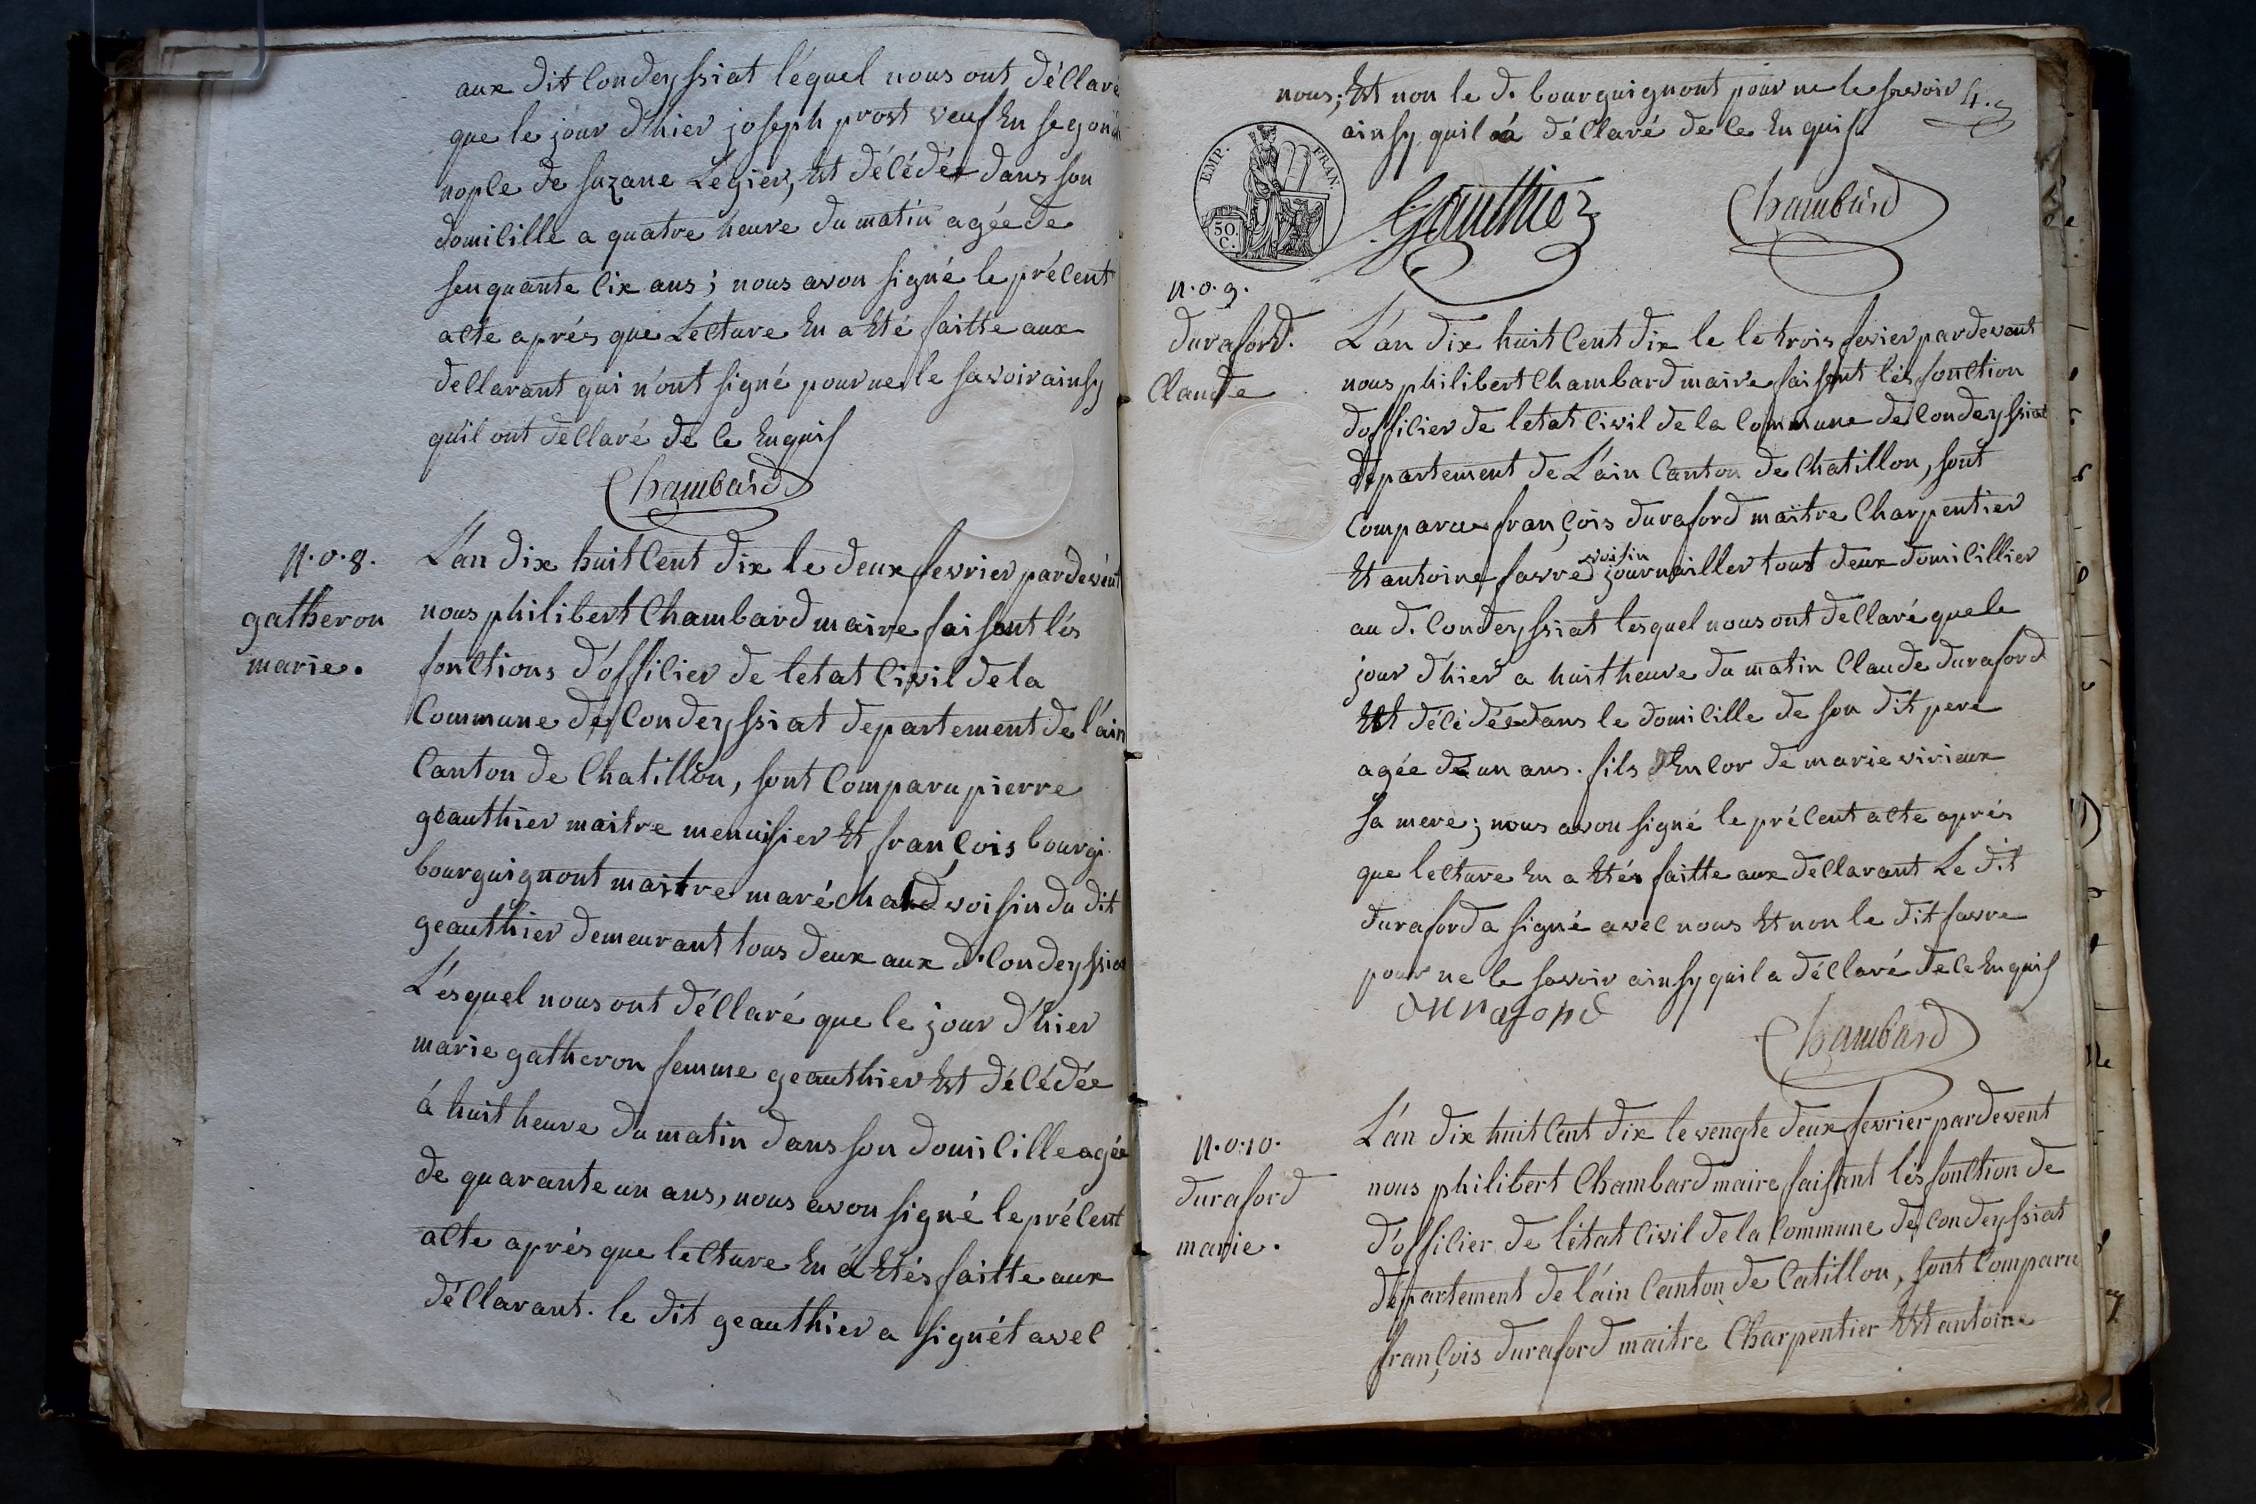 aux dit Condeyssiat léquel nous ont déClaré
que le jour d'hier joseph prost veuf En segond
nople de suzane Légier, Est déCédée dans son
domiCille a quatre heure du matin agée de
senquante Cix ans; nous avon signé le préCent
aCte aprés que LeCture En a Eté faitte aux
deClarant qui n'ont signé pour ne le savoir ainsy
quil ont déClaré de Ce Enquis
Chambard
N.o.8.
gatheron
marie.
L'an dix huit Cent dix le deux fevrier pardevent
nous philibert Chambard maire faisant lés
fonCtions d'offiCier de letat Civil de la
Commune de Condeyssiat departement de l'ain
Canton de Chatillon, sont Comparu pierre
geauthier maitre menuisier Et françois bourgi
bourguignont maitre maréchald voisin du dit
geauthier demeurant tous deux aux d. Condeyssiat
L'ésquel nous ont déClaré que le jour d'hier
marie gatheron femme geauthier Est déCédée
á huit heure du matin dans son domiCille agée
de quarante un ans, nous avon signé le préCent
aCte aprés que leCture En á Etés faitte aux
déClarant. le dit geauthier a signét aveC
4.
nous; Et non le d. bourguignont pour ne le savoir
ainsy quil á déClaré de Ce Enquis
EMP. FRAN.
50.
C.
Gauthier
Chambard
N.o.9.
duraford.
Claude
L'án dix huit Cent dix le le trois fevier pardevent
nous philibert Chambard maire faisant lés fonCtion
doffiCier de letat Civil de la Commune de Condeyssiat
département de L'ain Canton de Chatillon, sont
Comparu françois duraford maitre Charpentier
voisin
Et antoine favre journailler tout deux domiCillier
au d. Condeyssiat lesquel nous ont deClaré que le
jour d'hier a huit heure du matin Claude duraford
Est déCédée dans le domiCille de son dit pere
agée de un ans. fils EnCor de marie virieux
sa mere; nous avon signé le préCent aCte aprés
que leCture En a Etés faitte aux deClarant Le dit
duraford a signé aveC nous Et non le dit favre
pour ne le savoir ainsy quil a déClaré de Ce Enquis
duraford
Chambard
N.o.10.
duraford
marie.
L'án dix huit Cent dix le vengte deux fevrier pardevent
nous philibert Chambard maire faisant lés fonCtion de
d'offiCier de létat Civil de la Commune de Condeyssiat
département de l'áin Canton de Catillon, sont Comparu
françois duraford maitre Charpentier Et antoine